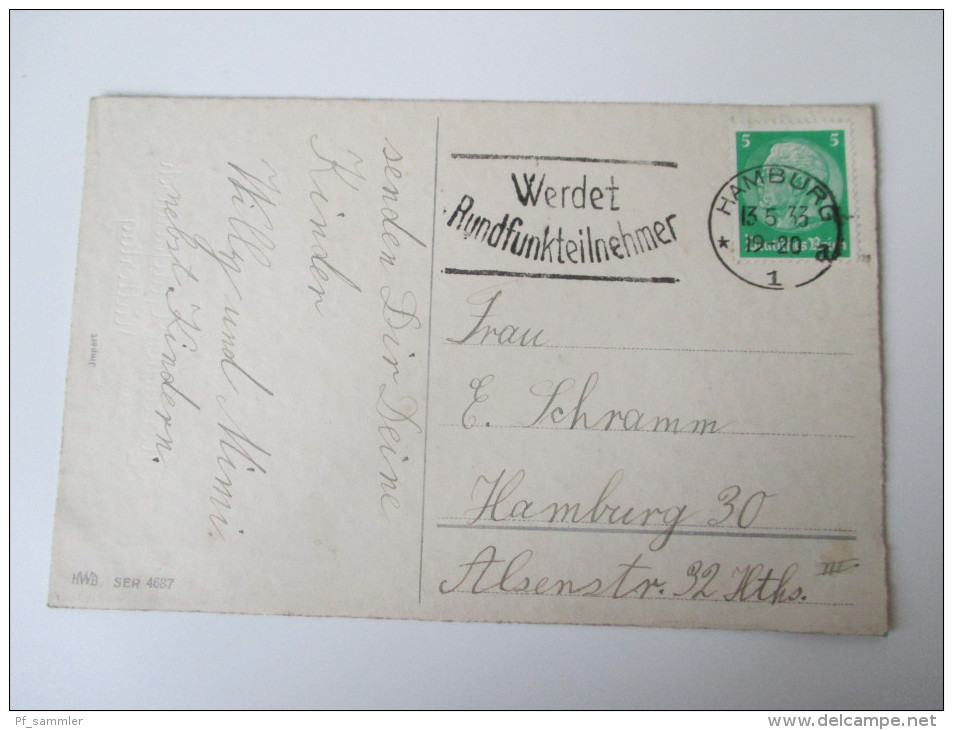 senden Dir Deine
Kinder
Willy und Mimi.
nebst Kindern.
Jmport
HWB SER 4687
Werdet
Rundfunkteilnehmer
5 5
HAMBURG
13.5.33
19-20 a
* 1
Frau
E. Schramm
Hamburg 30
Alsenstr. 32 Hths. III
Pf_sammler
www.delcampe.net